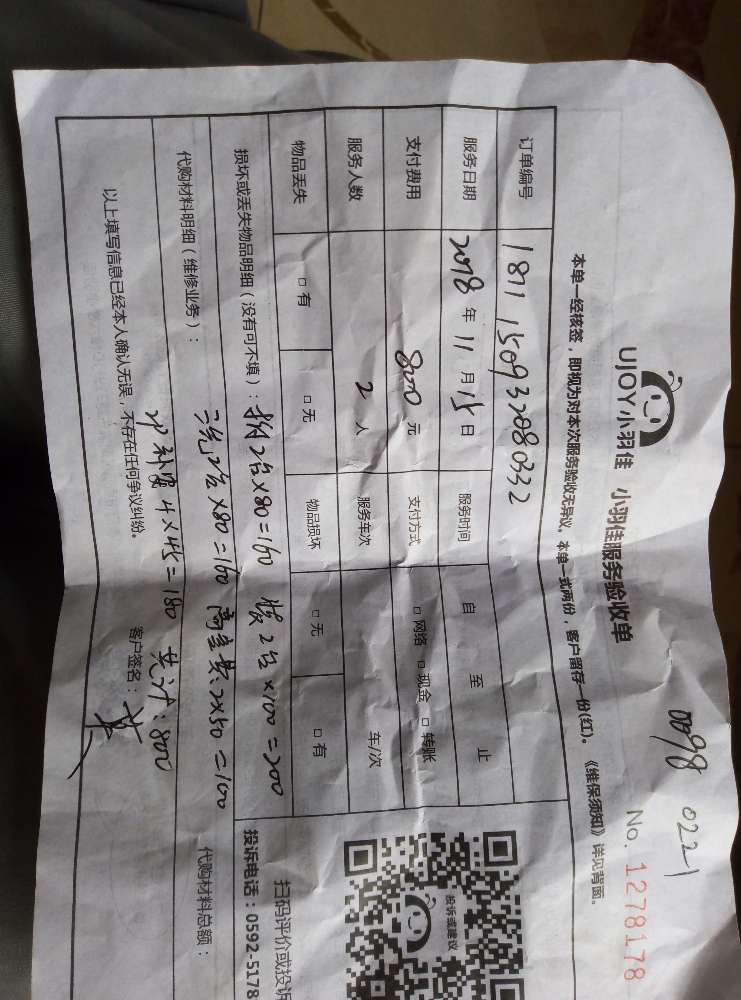 0098 022-1
UJOY小羽佳 小羽佳服务验收单 No. 1278178
本单一经核签，即视为对本次服务验收无异议，本单一式两份，客户留存一份(红)。《维保须知》详见背面。
订单编号 1811 1509 32080332
服务日期 2018 年 11 月 15 日 服务时间 自 至 止
支付费用 800 元 支付方式 □ 网络 □ 现金 □ 转账
服务人数 2 人 服务车次 车/次
物品丢失 □ 有 □ 无 物品损坏 □ 无 □ 有
损坏或丢失物品明细（没有可不填）：拆2台×80=160 装2台×100=200
代购材料明细（维修业务）： 洗2台×80=160 高空费:2×50=100
代购材料总额：
补 4×45=180 共计:800
以上填写信息已经本人确认无误，不存在任何争议纠纷。 客户签名：
投诉或建议
扫码评价或投诉
投诉电话：0592-5178